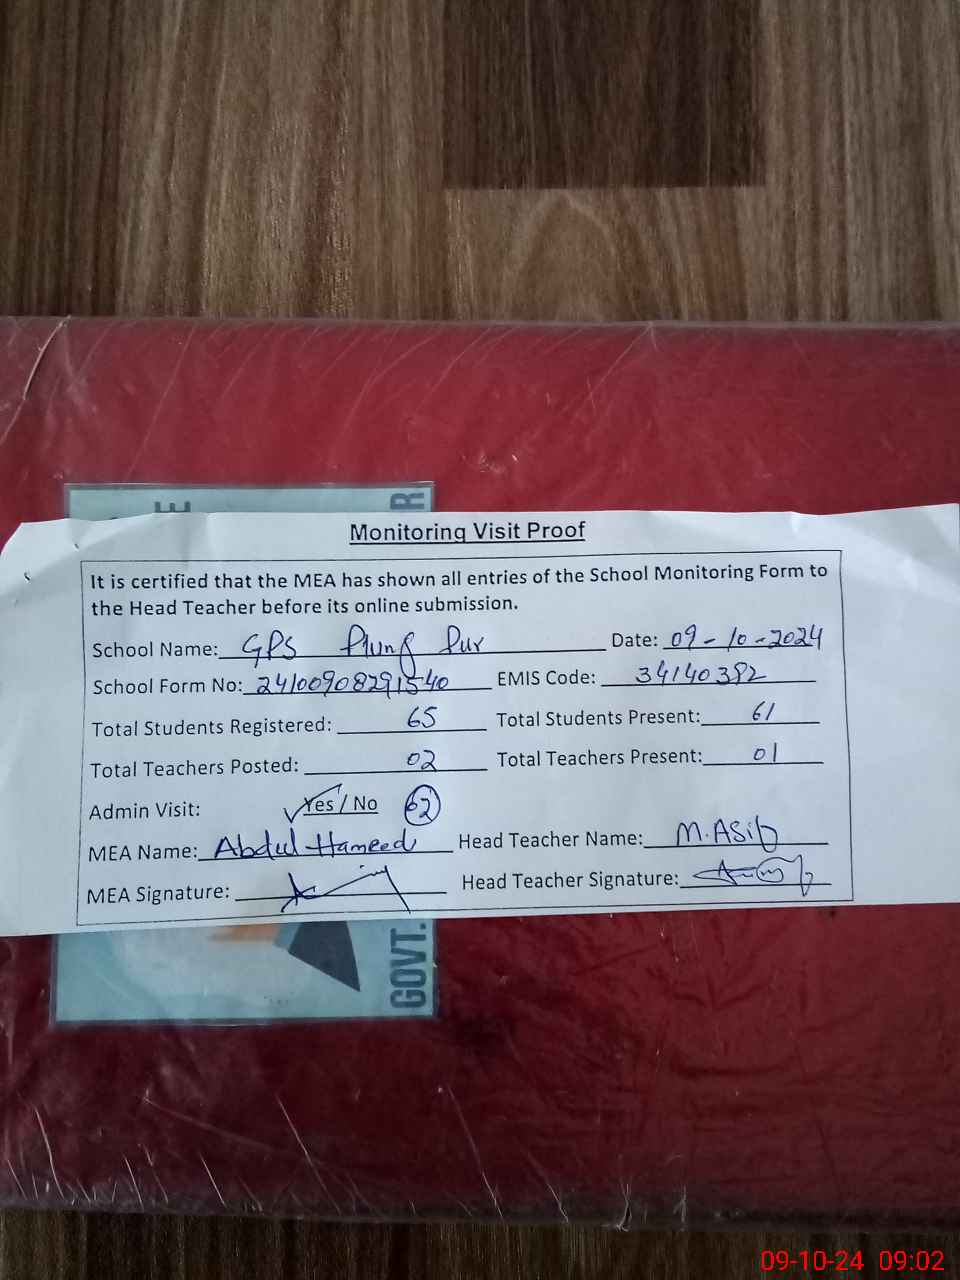 E
R
Monitoring Visit Proof
It is certified that the MEA has shown all entries of the School Monitoring Form to
the Head Teacher before its online submission.
School Name: GPS Pur Date: 09-10-2024
School Form No: 24100908291540 EMIS Code: 34140382
Total Students Registered: 65 Total Students Present: 61
Total Teachers Posted: 02 Total Teachers Present: 01
Admin Visit: Yes / No 62
MEA Name: Abdul Hameed Head Teacher Name: M. ASif
MEA Signature: Head Teacher Signature:
GOVT.
09-10-24 09:02